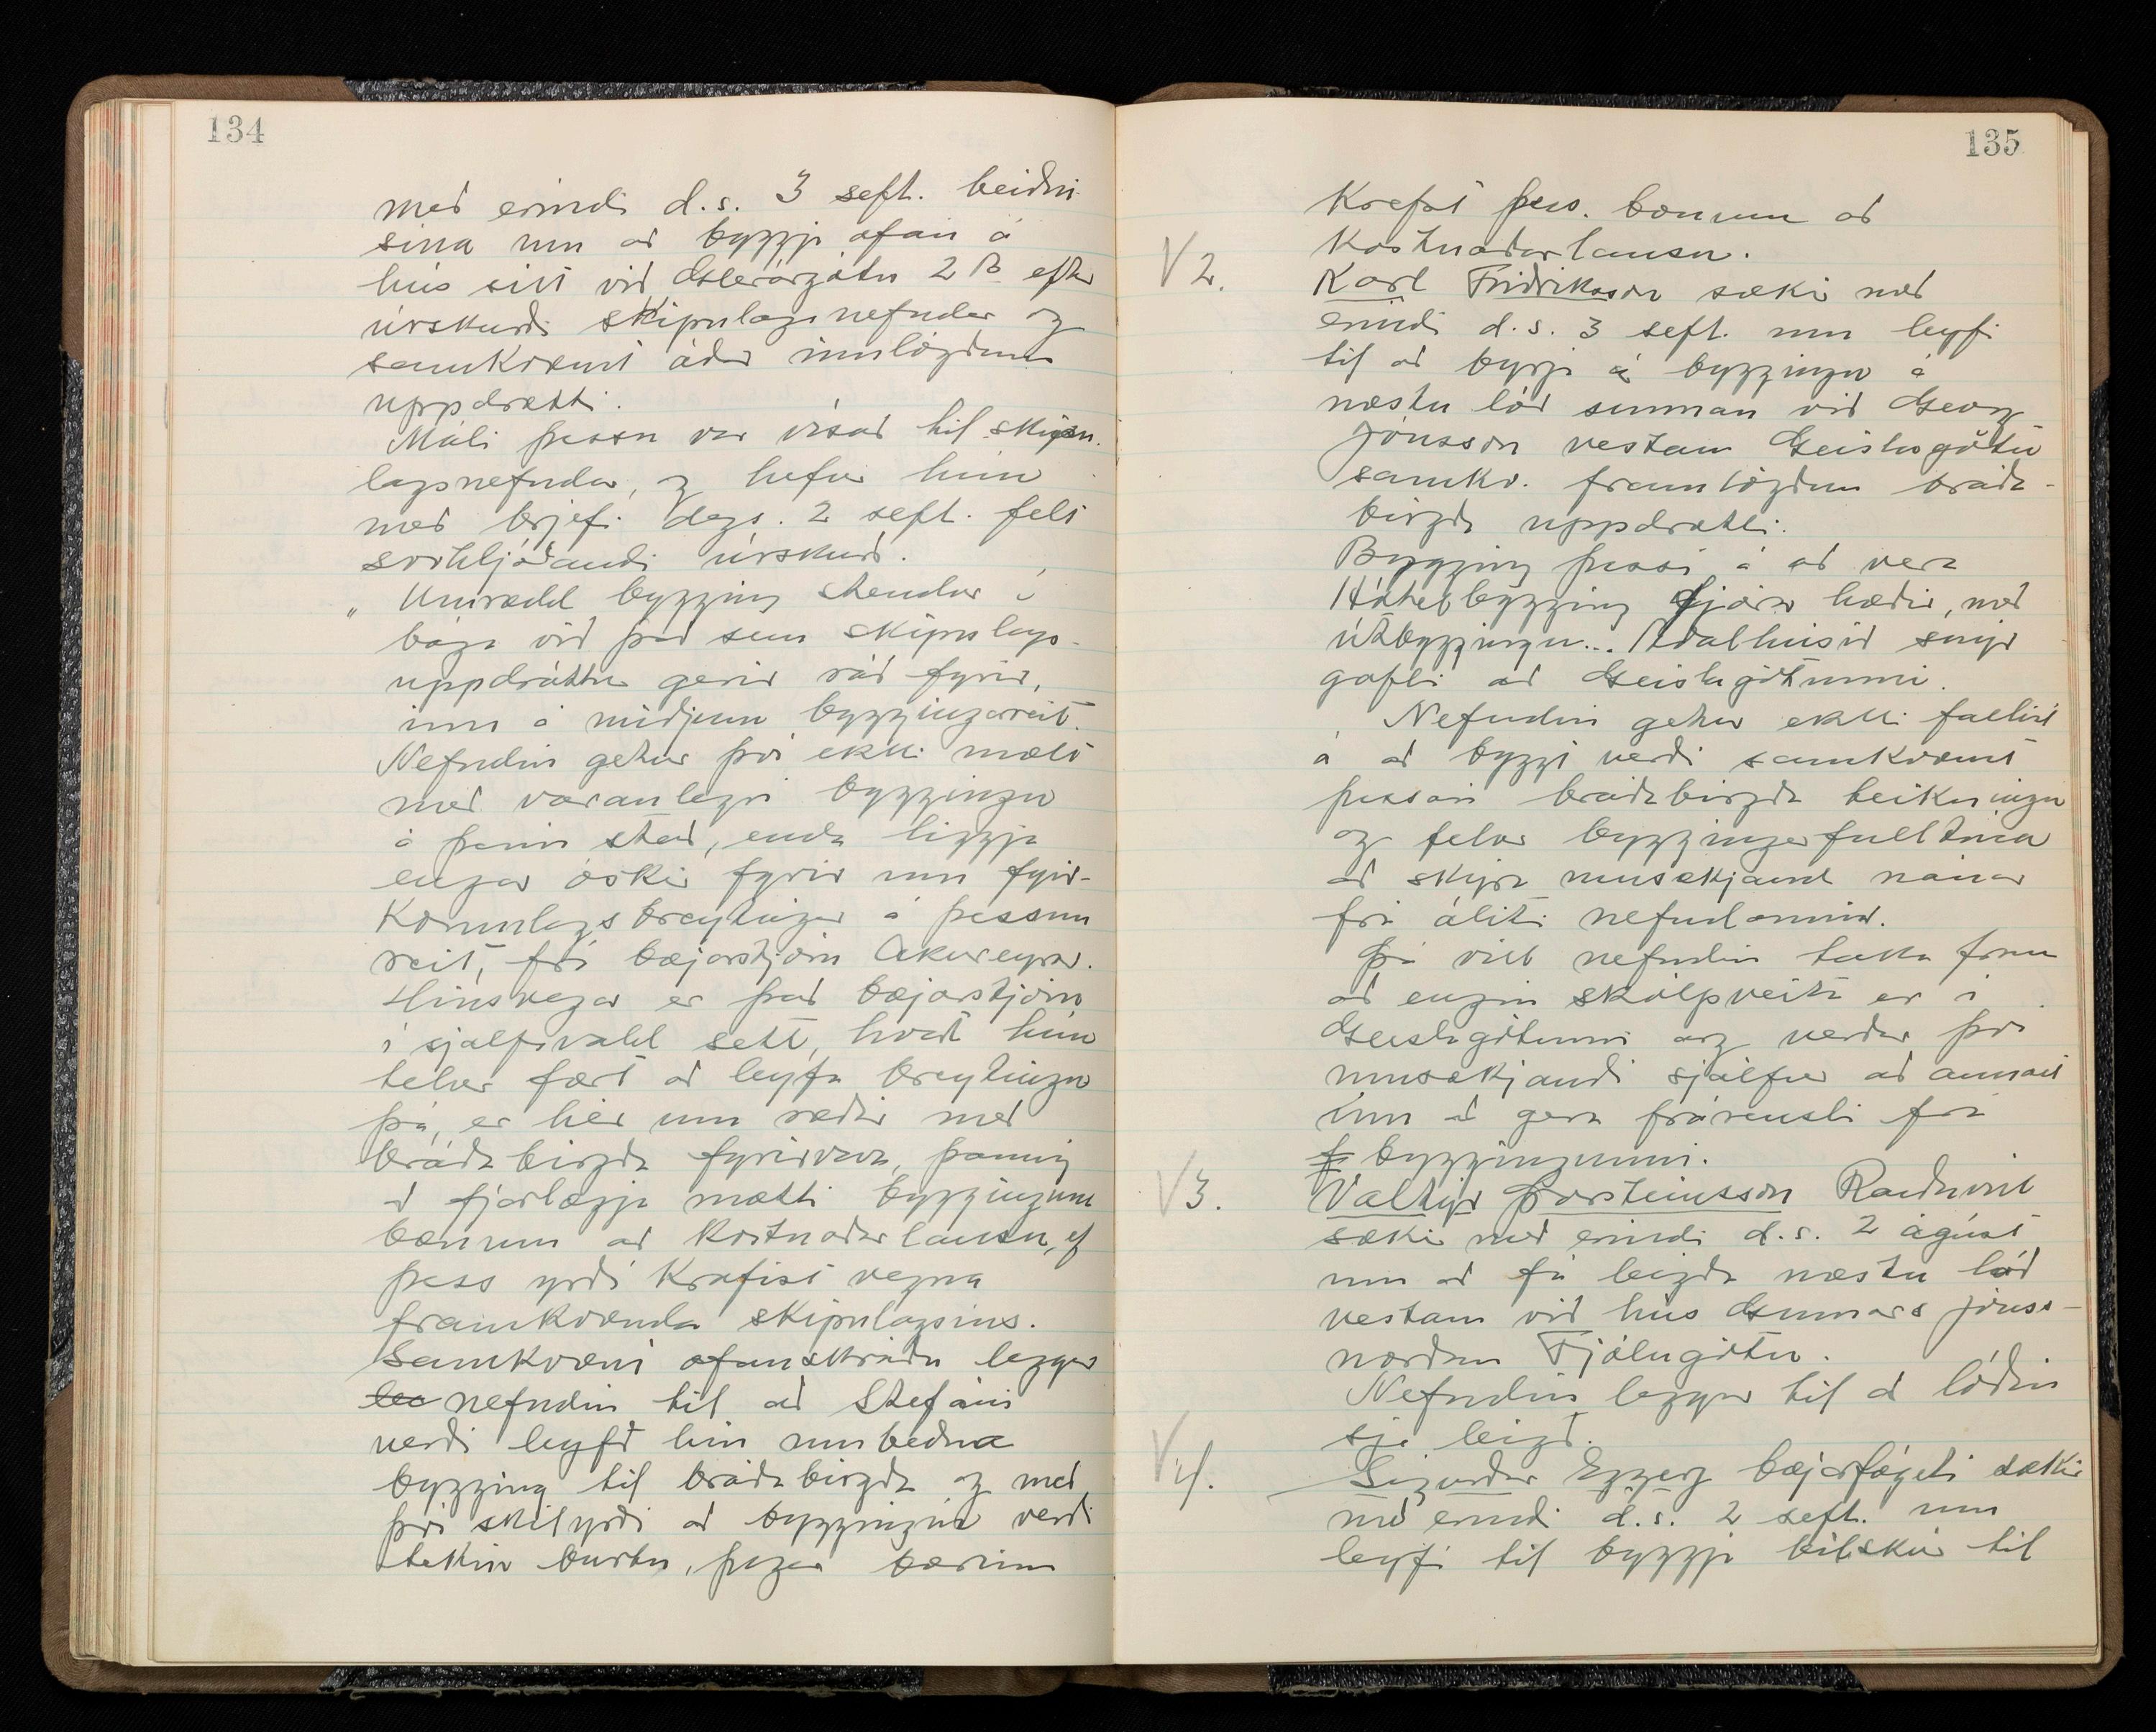 134
með erindi d.s. 3 sept. beiðni
sína um að byggja ofan á
hús sitt við Glerárgötu 2B eftir
úrskurði skipulagsnefndar og
samkvæmt áður innlögðum
uppdrætti.
Máli þessu var vísað til skipu-
lagsnefndar, og hefur hún
með brjefi dags. 2 sept. felt
svohljóðandi úrskurð.
„Umrædd bygging stendur í
bága við það sem skipulags-
uppdráttur gerir ráð fyrir,
inn á miðjum byggingareit.
Nefndin getur því ekki mælt
með varanlegri byggingu
á þeim stað, enda liggja
engar óskir fyrir um fyrir-
komulagsbreytingar á þessum
reit, frá bæjarstjórn Akureyrar.
Hinsvegar er það bæjarstjórn
í sjálfsvald sett, hvort hún
telur fært að leyfa breytingu
þá, er hér um ræðir með
bráðabirgða fyrirvara, þannig
að fjarlægja mætti bygginguna
bænum að kostnaðarlausu, ef
þess yrði krafist vegna
framkvæmda skipulagsins.
Samkvæmt ofanskráðu leggur
nefndin til að Stefáni
verði leyfð hin umbeðna
bygging til bráðabirgða og með
því skilyrði að byggingin verði
tekin burtu, þegar bærinn
135
krefst þess. bænum að
kostnaðarlausu.
V 2. Karl Friðriksson sækir með
erindi d.s. 3 sept. um leyfi
til að byrja á byggingu á
næstu lóð sunnan við Georg
Jónsson vestan Geislagötu
samkv. framlögðum bráða-
birgða uppdrætti.
Bygging þessi á að vera
Hótelbygging fjórar hæðir, með
útbyggingu... Aðalhúsið snýr
gafli að Geislagötunni.
Nefndin getur ekki fallist
á að byggt verði samkvæmt
þessari bráðabirgða teikningu
og felur byggingafulltrúa
að skýra umsækjanda nánar
frá áliti nefndarinnar.
Þá vill nefndin taka fram
að engin skólpveita er í
Geislagötunni og verður því
umsækjandi sjálfur að annast
um að gera frárensli frá
byggingunni.
V 3. Valtýr Þorsteinsson Rauðuvík
sækir með erindi d.s. 2 ágúst
um að fá leigða næstu lóð
vestan við hús Gunnars Jónss-
norðan Fjólugötu.
Nefndin leggur til að lóðin
sje leigð.
V 4. Sigurður Eggerz bæjarfógeti sækir
með erindi d.s. 2 sept. um
leyfi til byggja bílskúr til